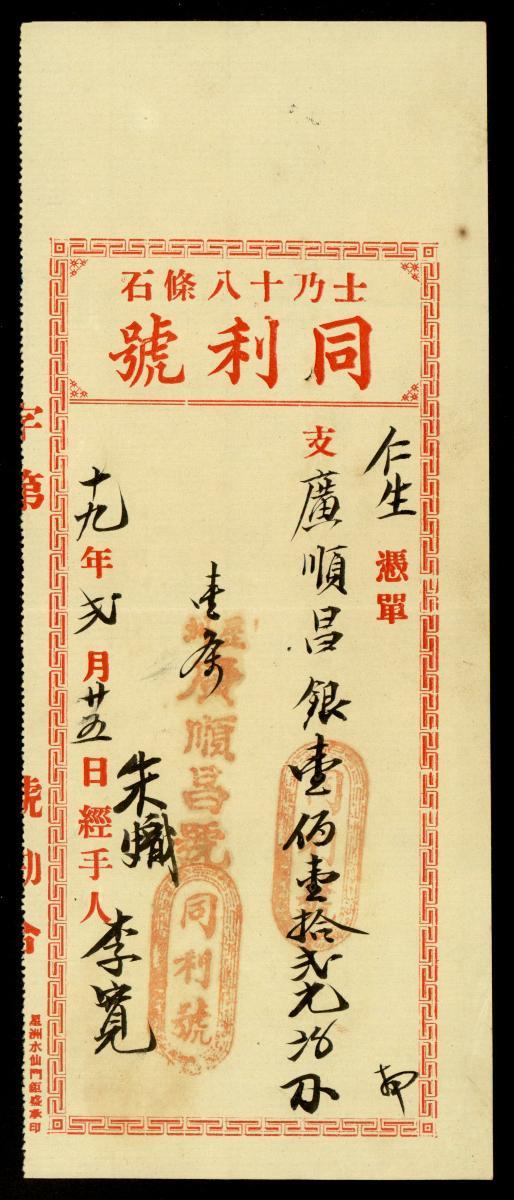 士乃十八條石
同利號
仁生 憑單
支 廣順昌銀壹佰壹拾弍元
廣順昌號
同利號
十九年弍月廿五日經手人李寬
朱熾
字第 號勘合
星洲水仙門鉅盛承印